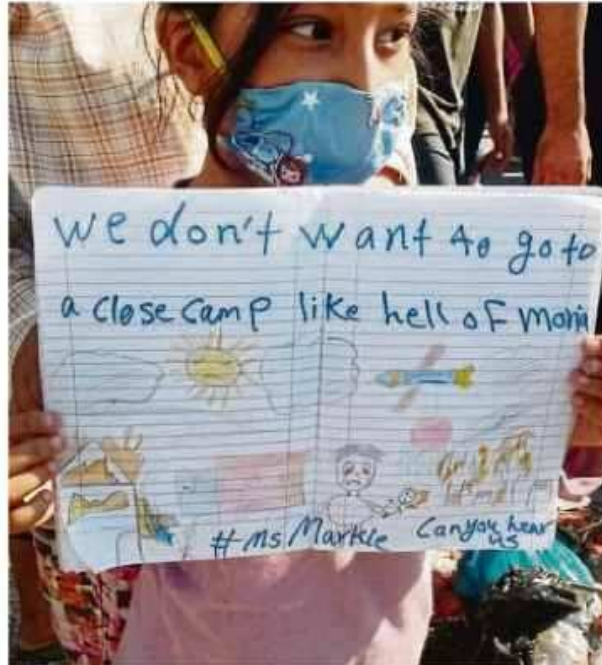 we don't want to go to
a close camp like hell of moria
#Ms Markle Can you hear
us